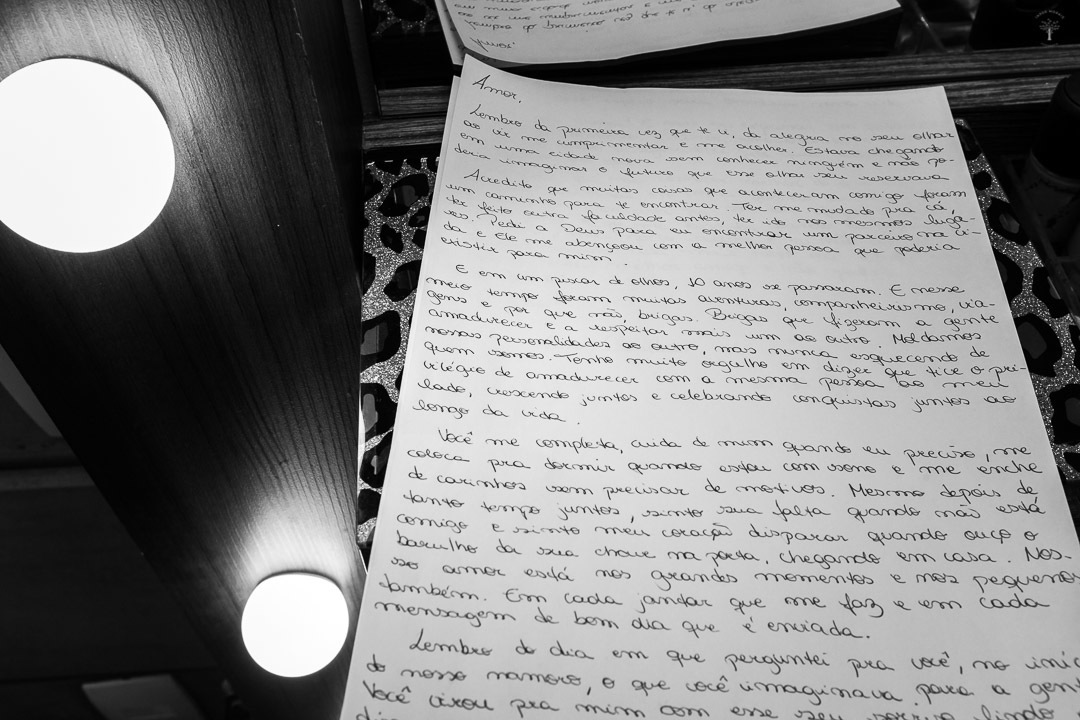 Amor,
Lembro da primeira vez que te vi, da alegria no seu olhar
ao vir me cumprimentar e me acolher. Estava chegando
em uma cidade nova sem conhecer ninguém e não po-
deria imaginar o futuro que esse olhar seu reservava
Acredito que muitas coisas que aconteceram comigo foram
um caminho para te encontrar. Ter me mudado pra cá,
ter feito outra faculdade antes, ter ido nos mesmos lugá-
res. Pedi a Deus para eu encontrar um parceiro na vi-
da e Ele me abençoou com a melhor pessoa que poderia
existir para mim.
E em um piscar de olhos, 10 anos se passaram. E nesse
meio tempo foram muitas aventuras, companheirismo, via-
gens e por que não, brigas. Brigas que fizeram a gente
amadurecer e a respeitar mais um ao outro. Moldamos
nossas personalidades ao outro, mas nunca esquecendo de
quem somos. Tenho muito orgulho em dizer que tive o pri-
vilégio de amadurecer com a mesma pessoa ao meu
lado, crescendo juntos e celebrando conquistas juntos ao
longo da vida.
Você me completa, cuida de mim quando eu preciso, me
coloca pra dormir quando estou com sono e me enche
de carinhos sem precisar de motivos. Mesmo depois de
tanto tempo juntos, sinto sua falta quando não está
comigo e sinto meu coração disparar quando ouço o
barulho da sua chave na porta, chegando em casa. Nos-
so amor está nos grandes momentos e nos pequenos
também. Em cada jantar que me faz e em cada
mensagem de bom dia que é enviada.
Lembro do dia em que perguntei pra você, no iníc
do nosso namoro, o que você imaginava para a gent
Você virou pra mim com esse seu sorriso lindo